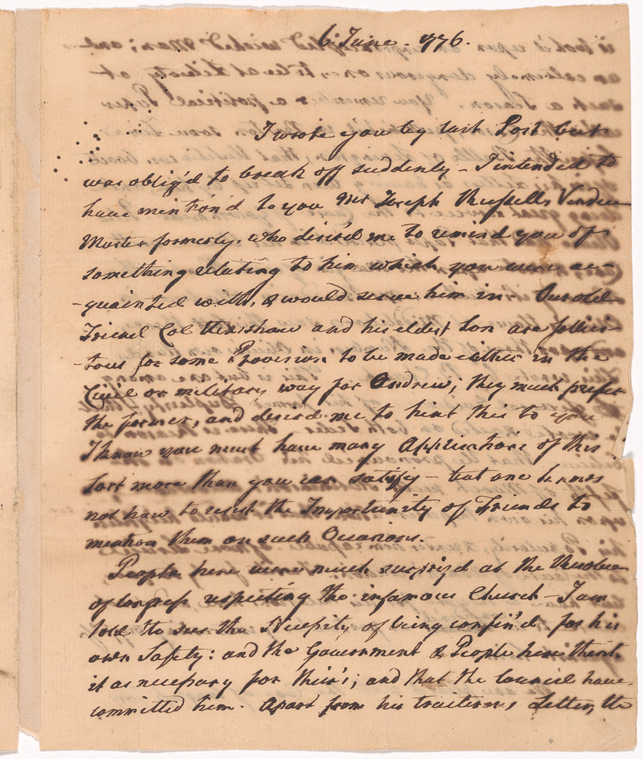 6 June. 1776.
I wrote you by last Post but
was oblig'd to break off suddenly - I intended to
have mention'd to you Mr Joseph Russell Vendue
Master formerly, who desir'd me to remind you of
something relating to him which you were ac-
-quainted with, & would serve him in. Our old
Friend Col Henshaw and his eldest Son are sollici-
-tous for some Provision to be made either in the
Civil or military way for Andrew; they much prefer
the former, and desired me to hint this to you
I know you must have many Applications of this
sort more than you can satisfy - but one knows
not how to resist the Importunity of Friends to
mention them on such Occasions.
People here were much surpriz'd at the Resolve
of Congress respecting the infamous Church - I am
told he sees the Necessity of being confin'd for his
own Safety: and the Government & People here think
it as necessary for their's; and that the Council have
committed him. Apart from his traiterous Letter, he